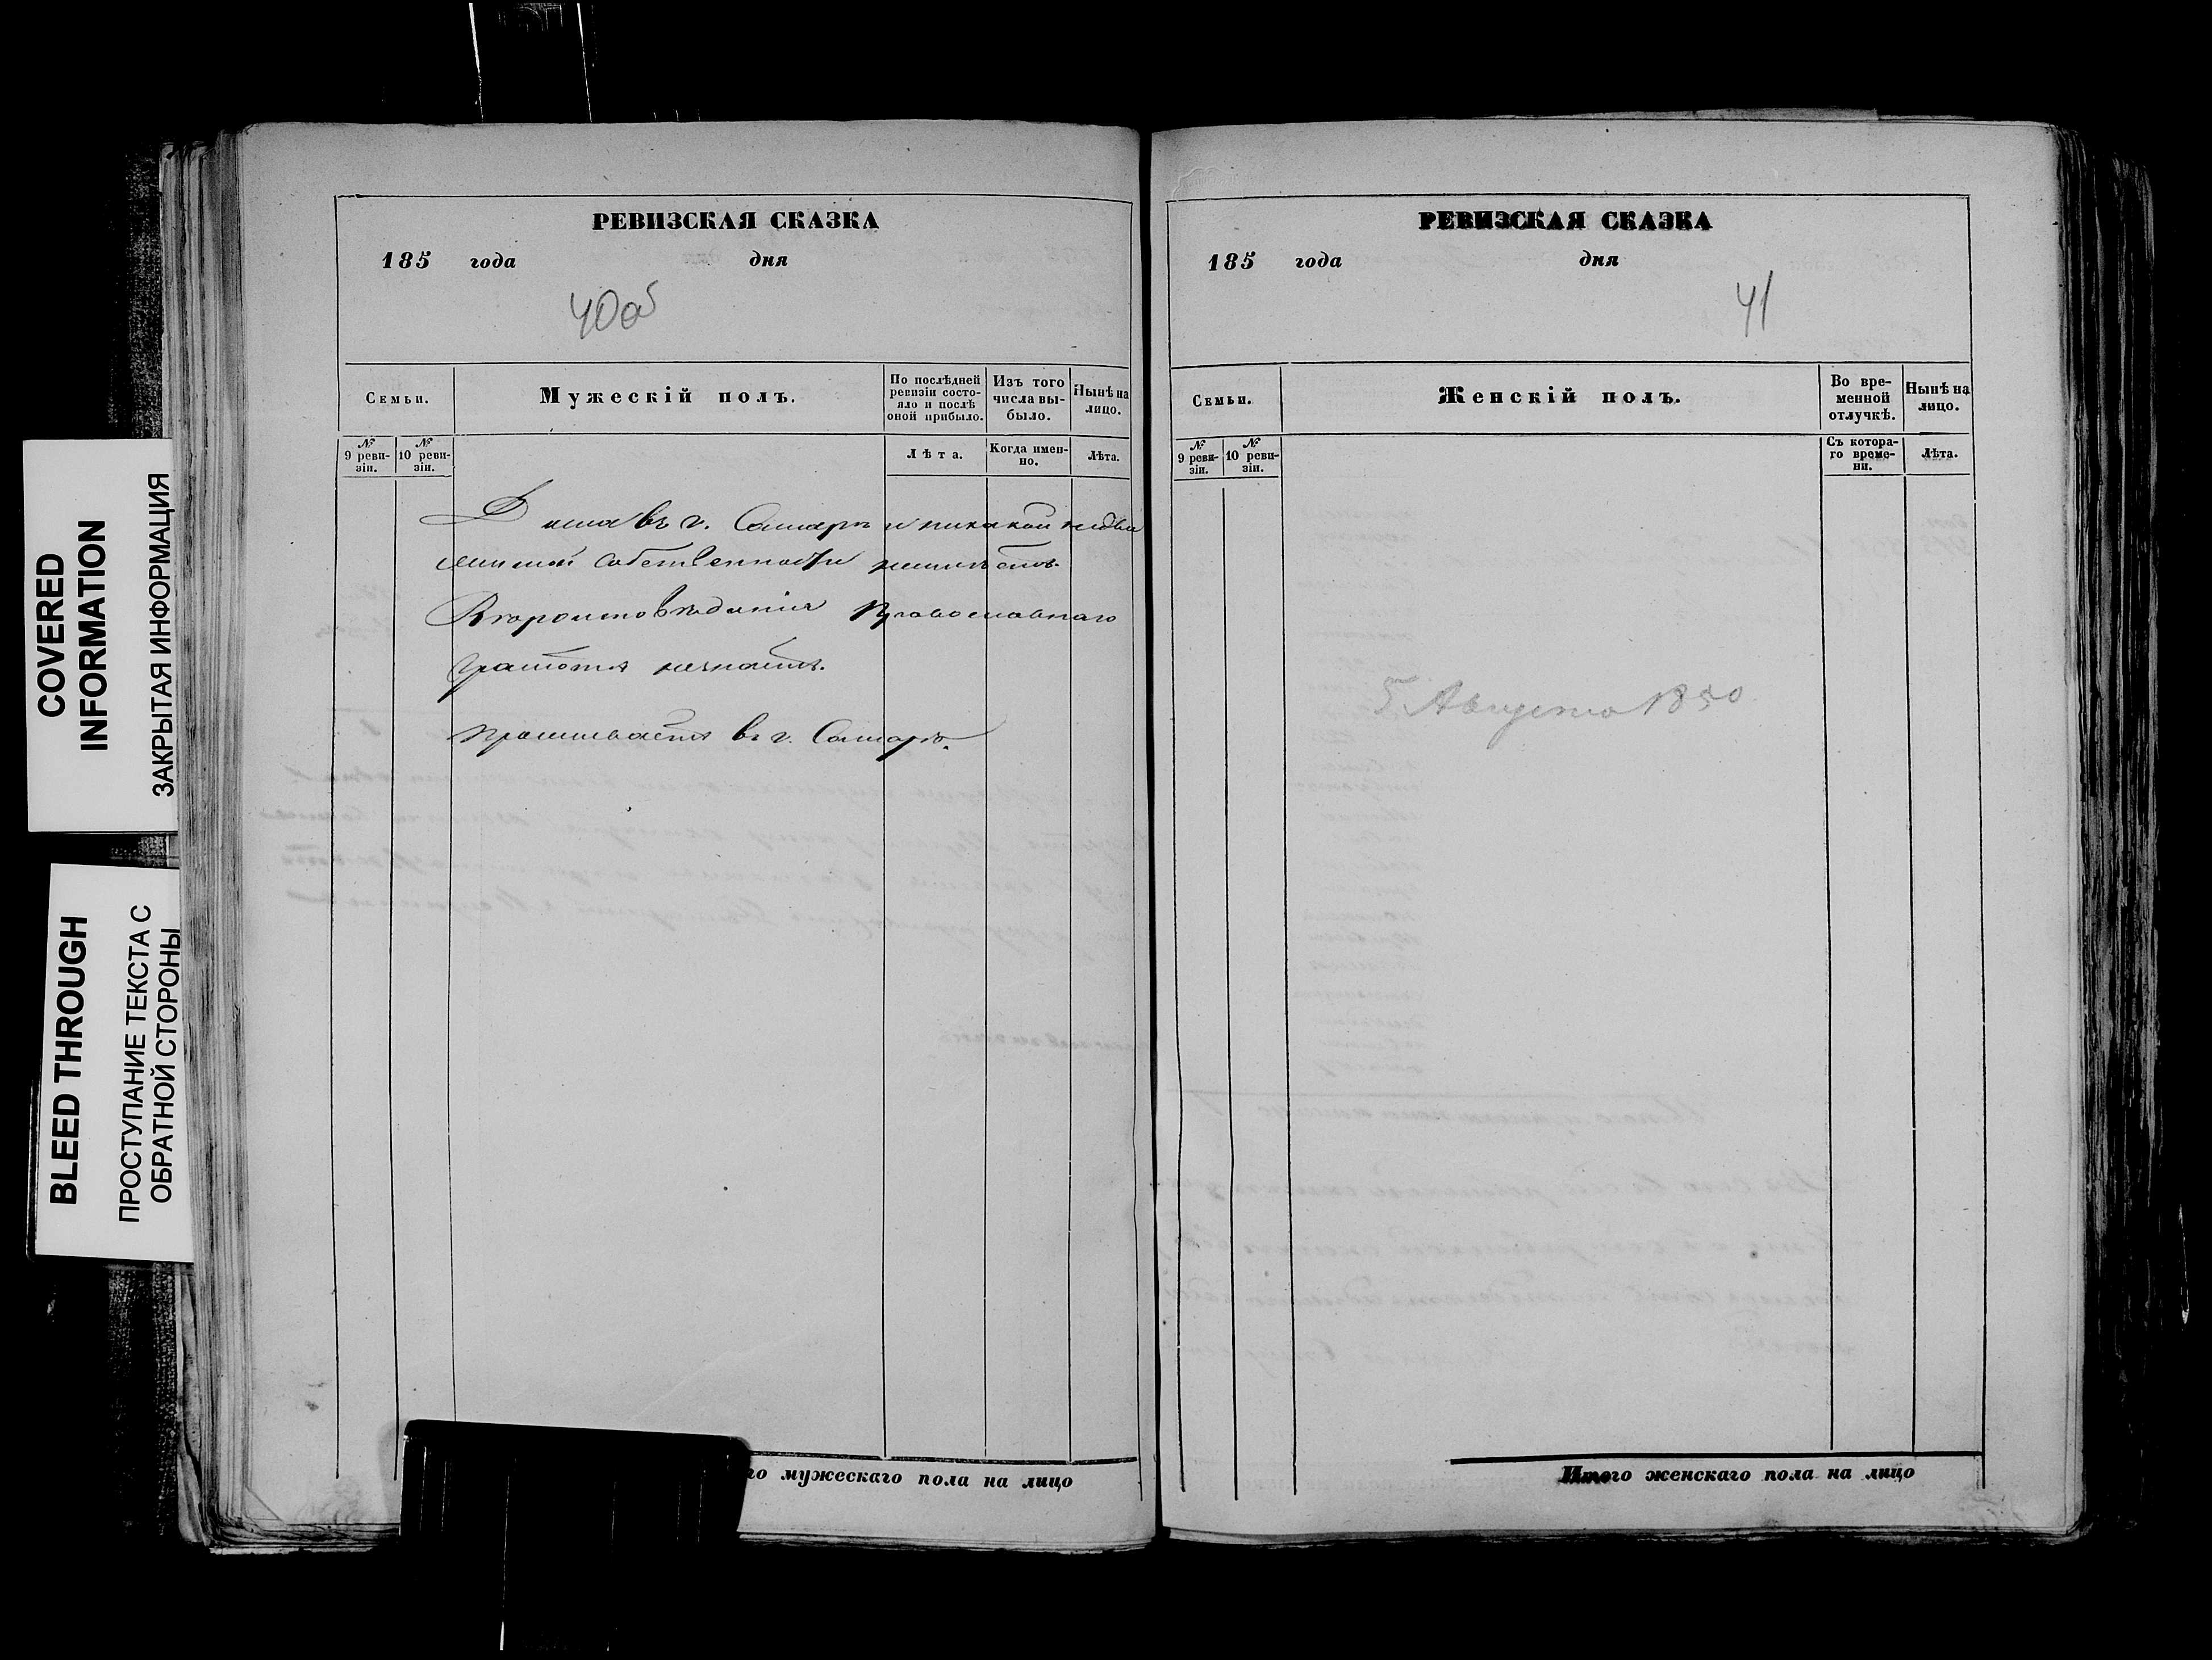 COVERED
INFORMATION
ЗАКРЫТАЯ ИНФОРМАЦИЯ
BLEED THROUGH
ПРОСТУПАНИЕ ТЕКСТА С
ОБРАТНОЙ СТОРОНЫ
РЕВИЗСКАЯ СКАЗКА
185 года дня
40об
Семьи.
Мужескій полъ.
По послѣдней
ревизіи состо-
яло и послѣ
оной прибыло.
Изъ того
числа вы-
было.
Нынѣ на
лицо.
№
9 реви-
зіи.
№
10 реви-
зіи.
Лѣта.
Когда имен-
но.
Лѣта.
Дома въ г. Самарѣ и никакой недви
жимой собственности неимѣетъ.
Вѣроисповѣданія Православнаго
Грамотѣ незнаетъ.
Проживаетъ въ г. Самарѣ.
го мужескаго пола на лицо
РЕВИЗСКАЯ СКАЗКА
185 года дня
41
Семьи.
Женскій полъ.
Во вре-
менной
отлучкѣ.
Нынѣ на
лицо.
№
9 реви-
зіи.
№
10 реви-
зіи.
Съ котора-
го време-
ни.
Лѣта.
5 Августа 1850
Итого женскаго пола на лицо